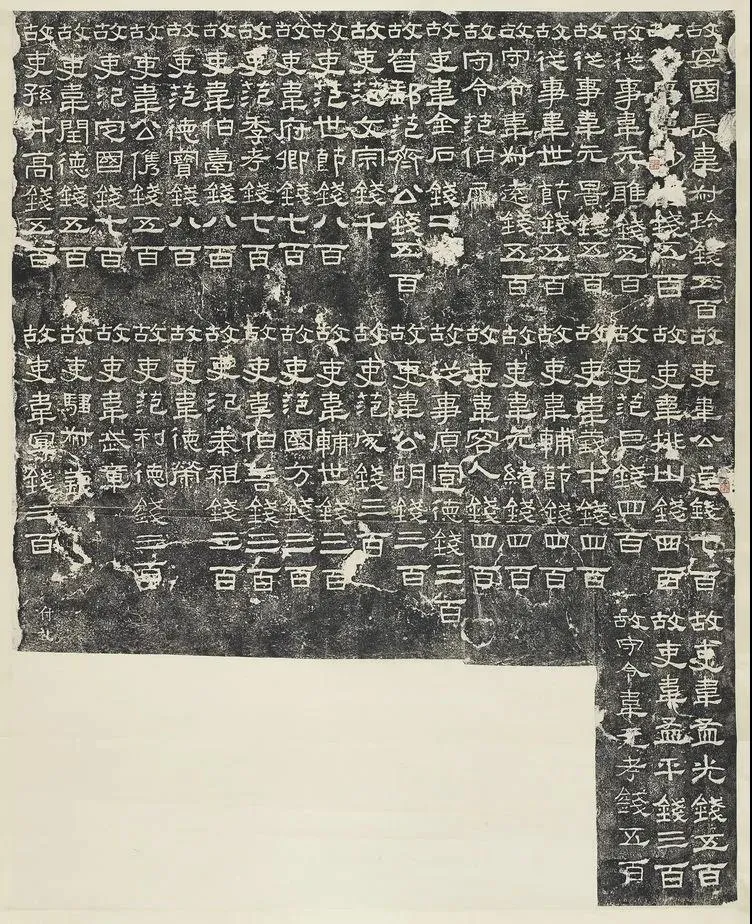 故安國長韋叔珍錢五百
故從事韋少錢五百
故從事韋元雕錢五百
故從事韋元景錢五百
故從事韋世節錢五百
故守令韋叔遠錢五百
故守令范伯犀
故督郵范齊公錢五百
故吏韋金石錢二
故吏范文宗錢千
故吏范世節錢八百
故吏韋府卿錢七百
故吏范季考錢七百
故吏韋伯臺錢八百
故吏范德寶錢八百
故吏韋公儁錢五百
故吏氾定國錢七百
故吏韋閏德錢五百
故吏孫升高錢五百
故吏韋公逴錢七百
故吏韋排山錢四百
故吏范巨錢四百
故吏韋義才錢四百
故吏韋輔節錢四百
故吏韋元緒錢四百
故吏韋客人錢四百
故從事原宣德錢三百
故吏韋公明錢三百
故吏范成錢三百
故吏韋輔世錢三百
故吏范國方錢三百
故吏韋伯善錢三百
故吏氾奉祖錢三百
故吏韋德榮
故吏范利德錢三百
故吏韋武章
故吏騶叔義
故吏韋宣錢三百
故吏韋孟光錢五百
故吏韋孟平錢三百
故守令韋元考錢五百